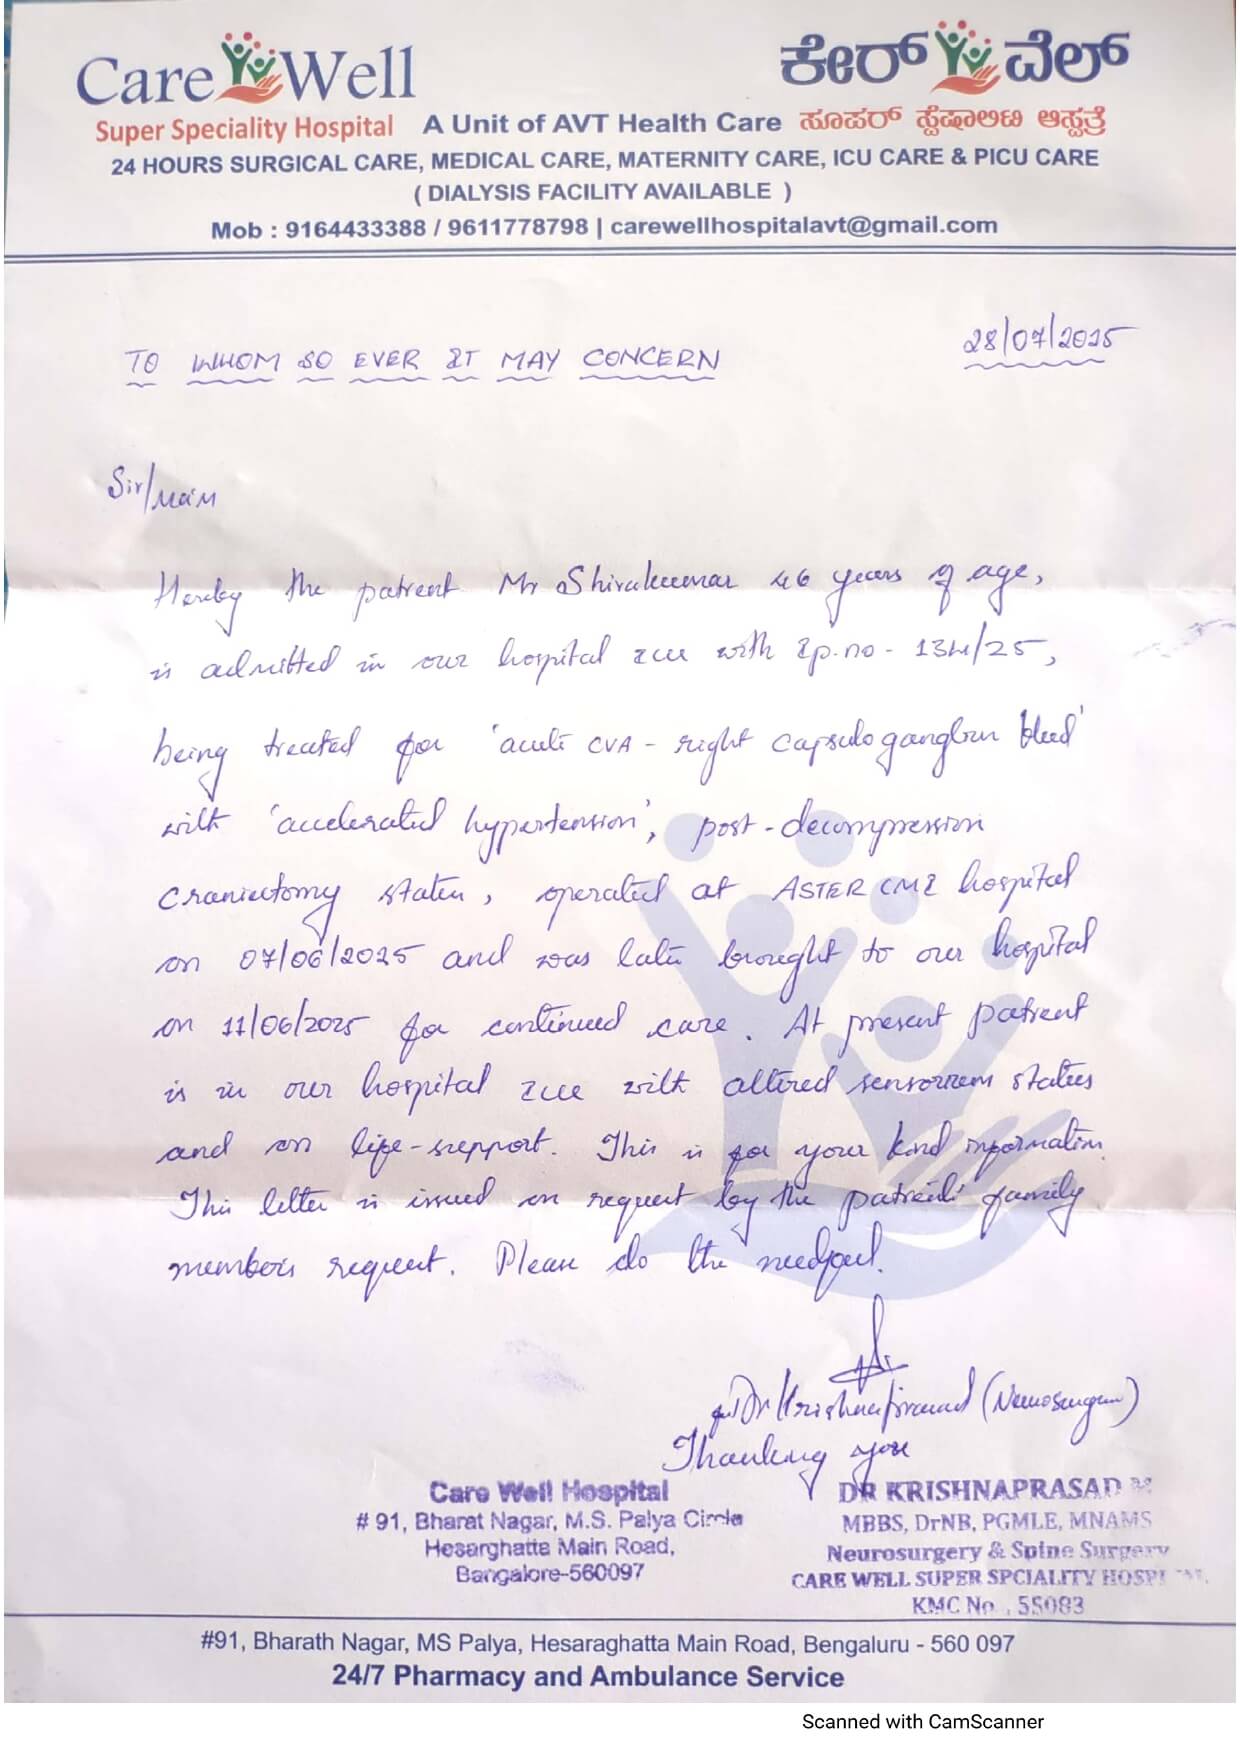 Care Well
ಕೇರ್ ವೆಲ್
Super Speciality Hospital A Unit of AVT Health Care ಸೂಪರ್ ಸ್ಪೆಷಾಲಿಟಿ ಆಸ್ಪತ್ರೆ
24 HOURS SURGICAL CARE, MEDICAL CARE, MATERNITY CARE, ICU CARE & PICU CARE
( DIALYSIS FACILITY AVAILABLE )
Mob : 9164433388 / 9611778798 | carewellhospitalavt@gmail.com
28/07/2025
TO WHOM SO EVER IT MAY CONCERN
Sir/Ma'm
Hereby the patient Mr Shivakumar 46 years of age,
is admitted in our hospital ICU with Ip.no - 1341/25,
being treated for 'acute CVA - right capsuloganglion bleed'
with 'accelerated hypertension', post-decompression
craniectomy status, operated at ASTER CMI hospital
on 07/06/2025 and was later brought to our hospital
on 11/06/2025 for continued care. At present patient
is in our hospital ICU with altered sensorium status
and on life-support. This is for your kind information.
This letter is issued on request by the patients' family
members request. Please do the needful.
Dr Krishnaprasad (Neurosurgeon)
Thanking you
Care Well Hospital
# 91, Bharat Nagar, M.S. Palya Circle
Hesarghatta Main Road,
Bangalore-560097
DR KRISHNAPRASAD
MBBS, DrNB, PGMLE, MNAMS
Neurosurgery & Spine Surgery
CARE WELL SUPER SPCIALITY HOSPITAL
KMC No. 55083
#91, Bharath Nagar, MS Palya, Hesaraghatta Main Road, Bengaluru - 560 097
24/7 Pharmacy and Ambulance Service
Scanned with CamScanner